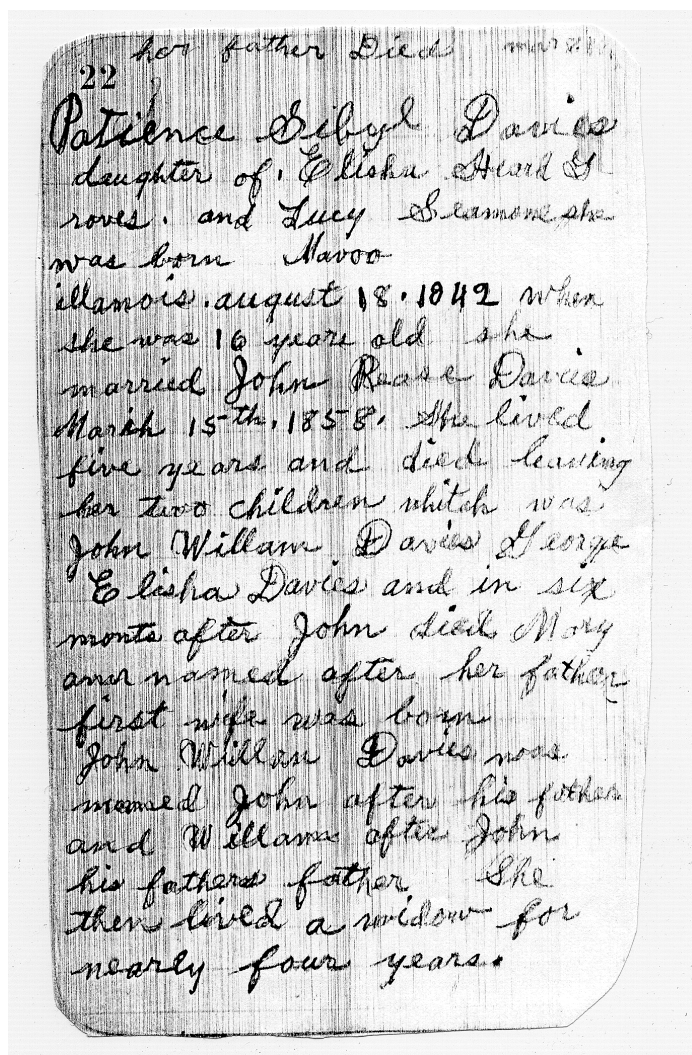 her father Died
22
Patience Sibyl Davies
daughter of. Elisha Heard G
roves. and Lucy Seamone she
was born Navoo
illanois. august 18. 1842 when
she was 16 years old she
married John Rease Davies
March 15th. 1858. She lived
five years and died leaving
her two children whitch was
John Willam Davies George
Elisha Davies and in six
monts after John died Mary
named after her father
first wife was born
John Willam Davies was
named John after his father
and Willams after John
his fathers father She
then lived a widow for
nearly four years.